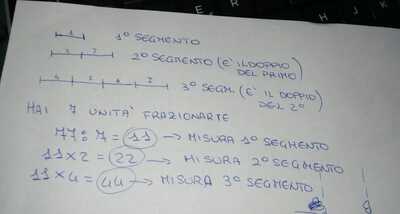 1 1º SEGMENTO
1 2 2º SEGMENTO (E' IL DOPPIO DEL PRIMO)
4 5 6 7 3º SEGM. (E' IL DOPPIO DEL 2º)
HAI 7 UNITA' FRAZIONARTE
77:7=11 → MISURA 1º SEGMENTO
11x2=22 → MISURA 2º SEGMENTO
11x4=44 → MISURA 3º SEGMENTO